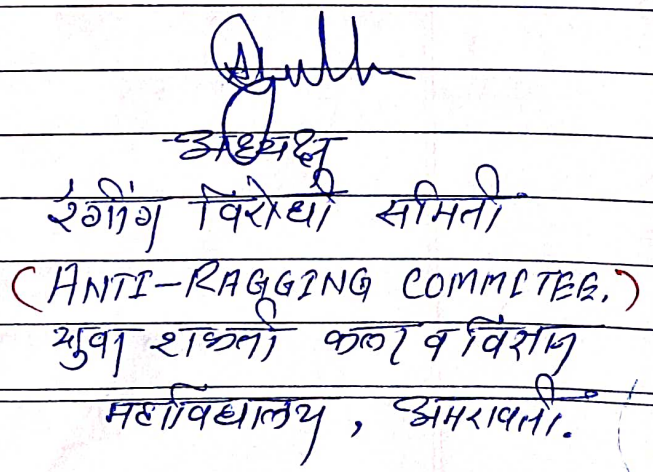 अध्यक्ष
रॅगींग विरोधी समिती
(ANTI-RAGGING COMMITEE.)
युवा शक्ती कला व विज्ञान
महाविद्यालय, अमरावती.